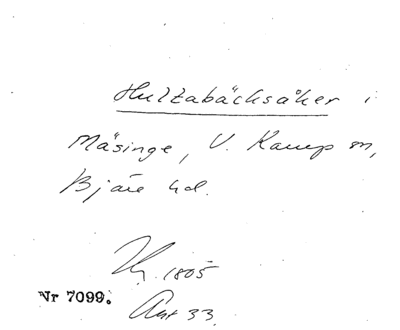 Hultabäcksåker i
Mäsinge, V. Karup sn,
Bjäre hd.
1805
Nr 7099.
Akt 33